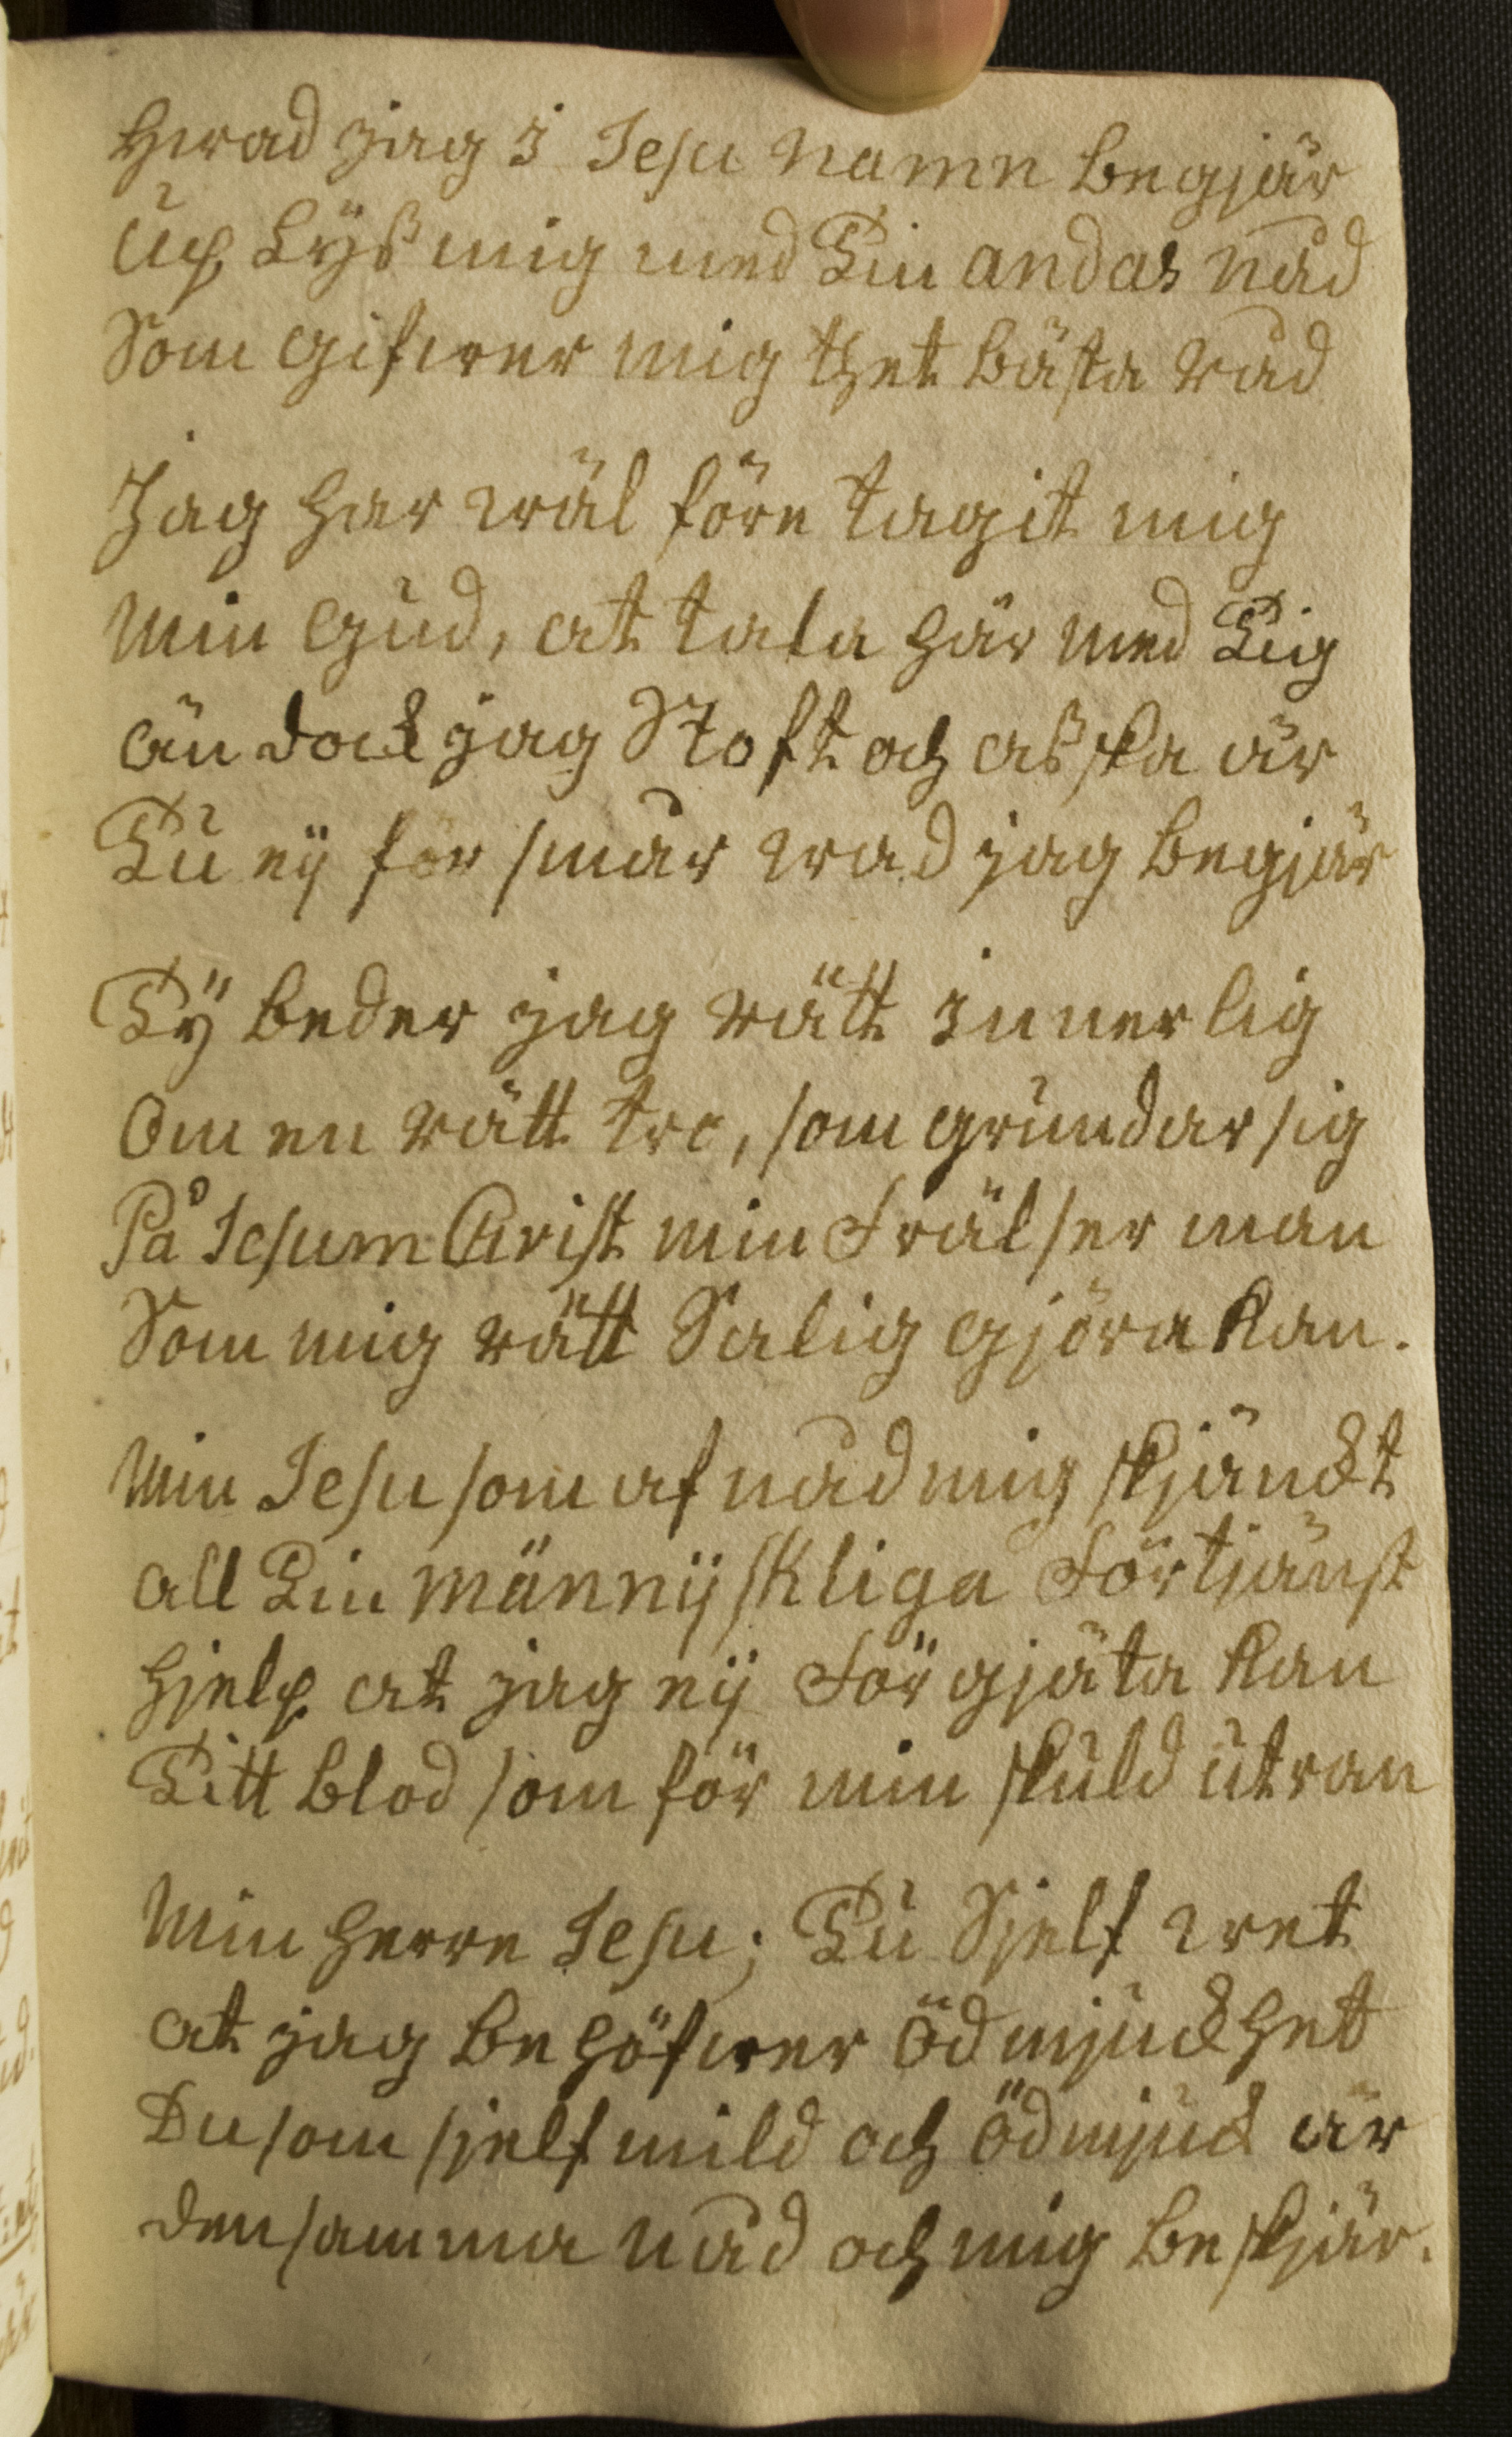 Hwad jag i Jesu namn begjär
Up Lyß mig med Din andas nåd
Som gifwer mig thet bästa råd
Jag har wäl före tagit mig
Min Gud, at tala här med Dig
än dock jag Stoft och aßska är
Du eij för smår wad jag begjär
Dÿ beder jag rätt innerlig
Om en rätt tro, som grundar sig
På Jesum Christ min Frälser man
Som mig rätt Salig gjöra kan.
Min Jesu som af nåd mig skjänckt
all Din männijskliga Förtjänst
hjelp at jag eij För gjäta kan
Ditt blod som för min skuld utran
Min Herre Jesu; Du Sjelf wet
at jag behöfwer ödmjuckhet
Du som sjelf mild och ödmjuck är
den samma nåd och mig beskjär.